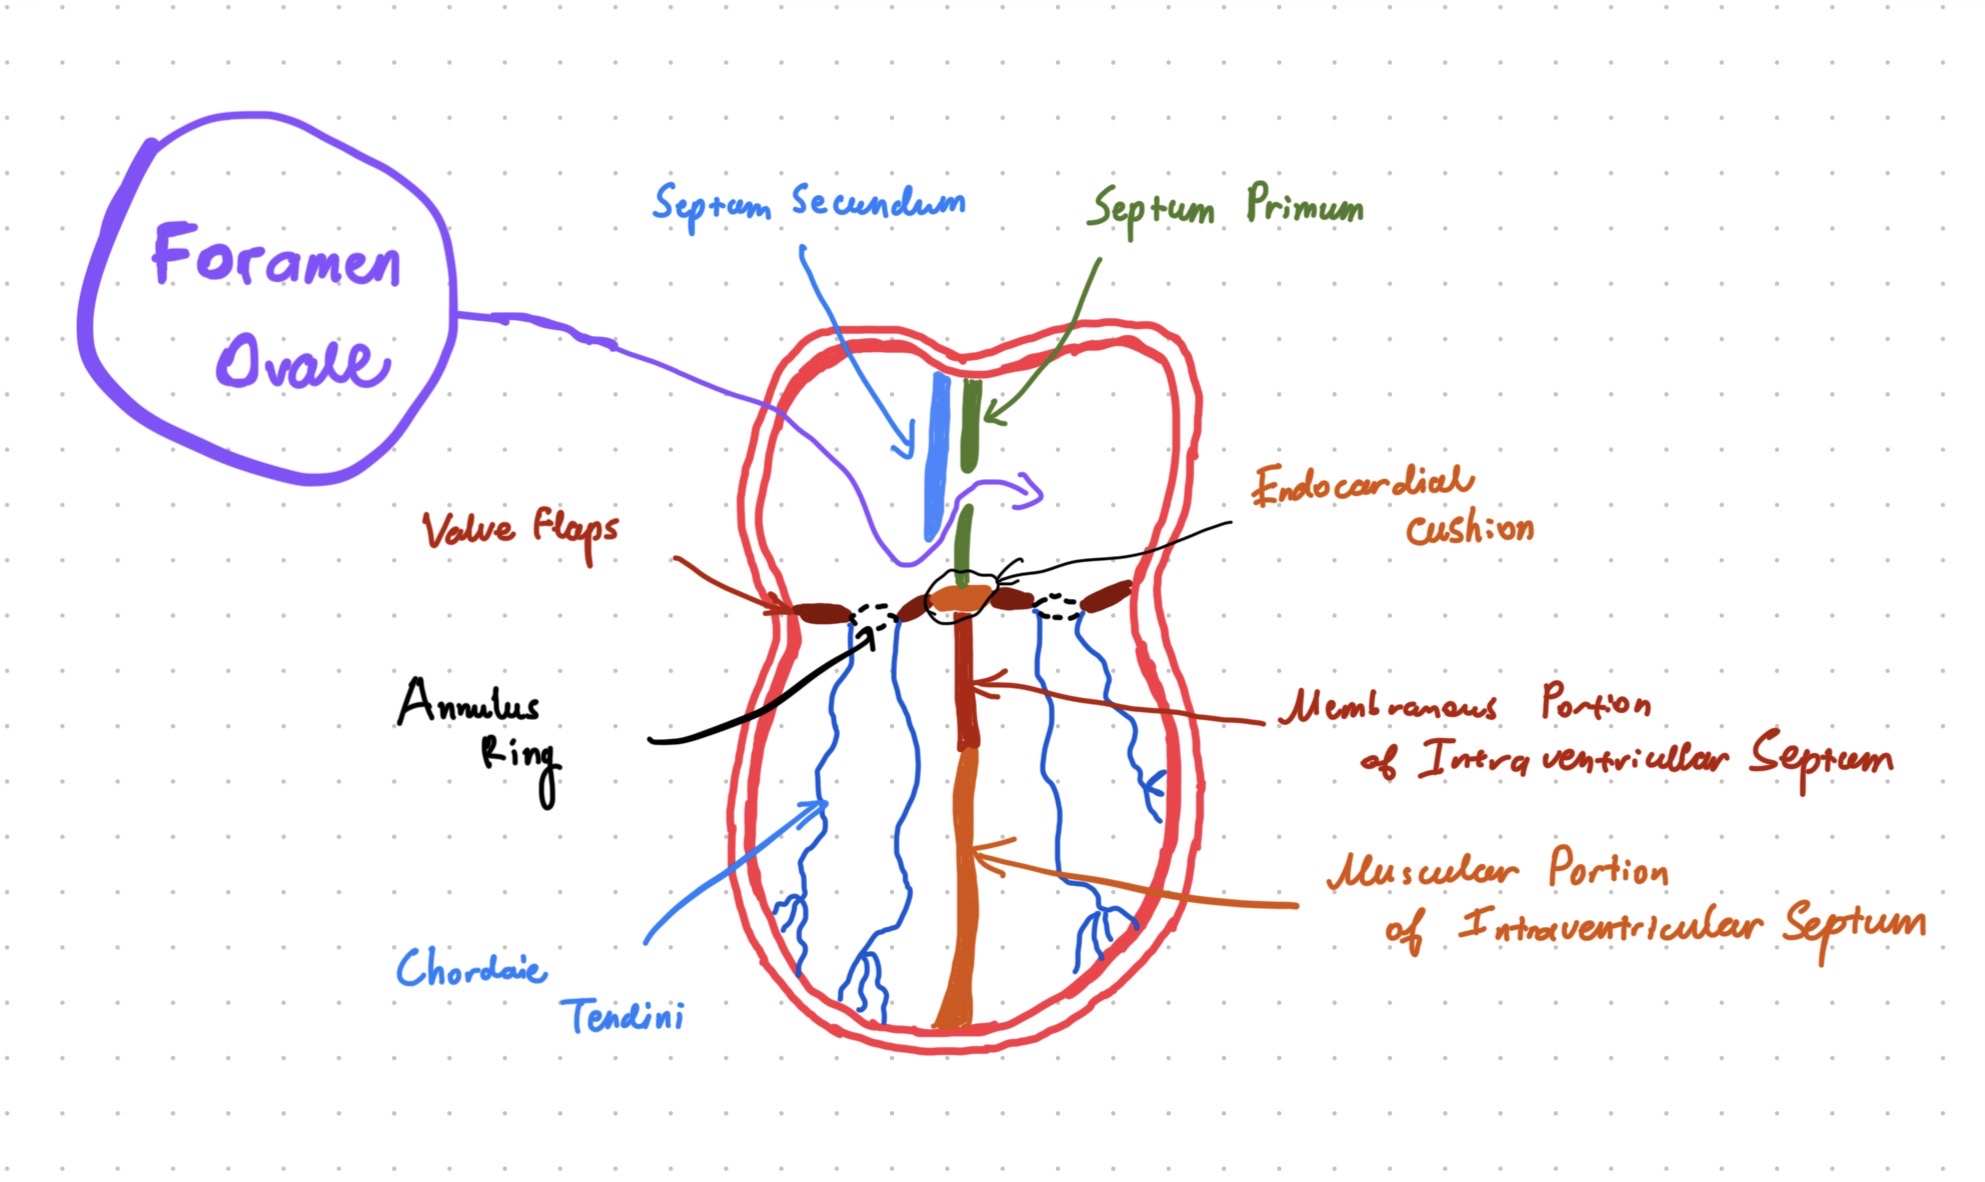 Foramen
Ovale
Septum Secundum
Septum Primum
Endocardial
Cushion
Valve Flaps
Annulus
Ring
Membranous Portion
of Intraventricullar Septum
Muscular Portion
of Intraventricular Septum
Chordaie
Tendini